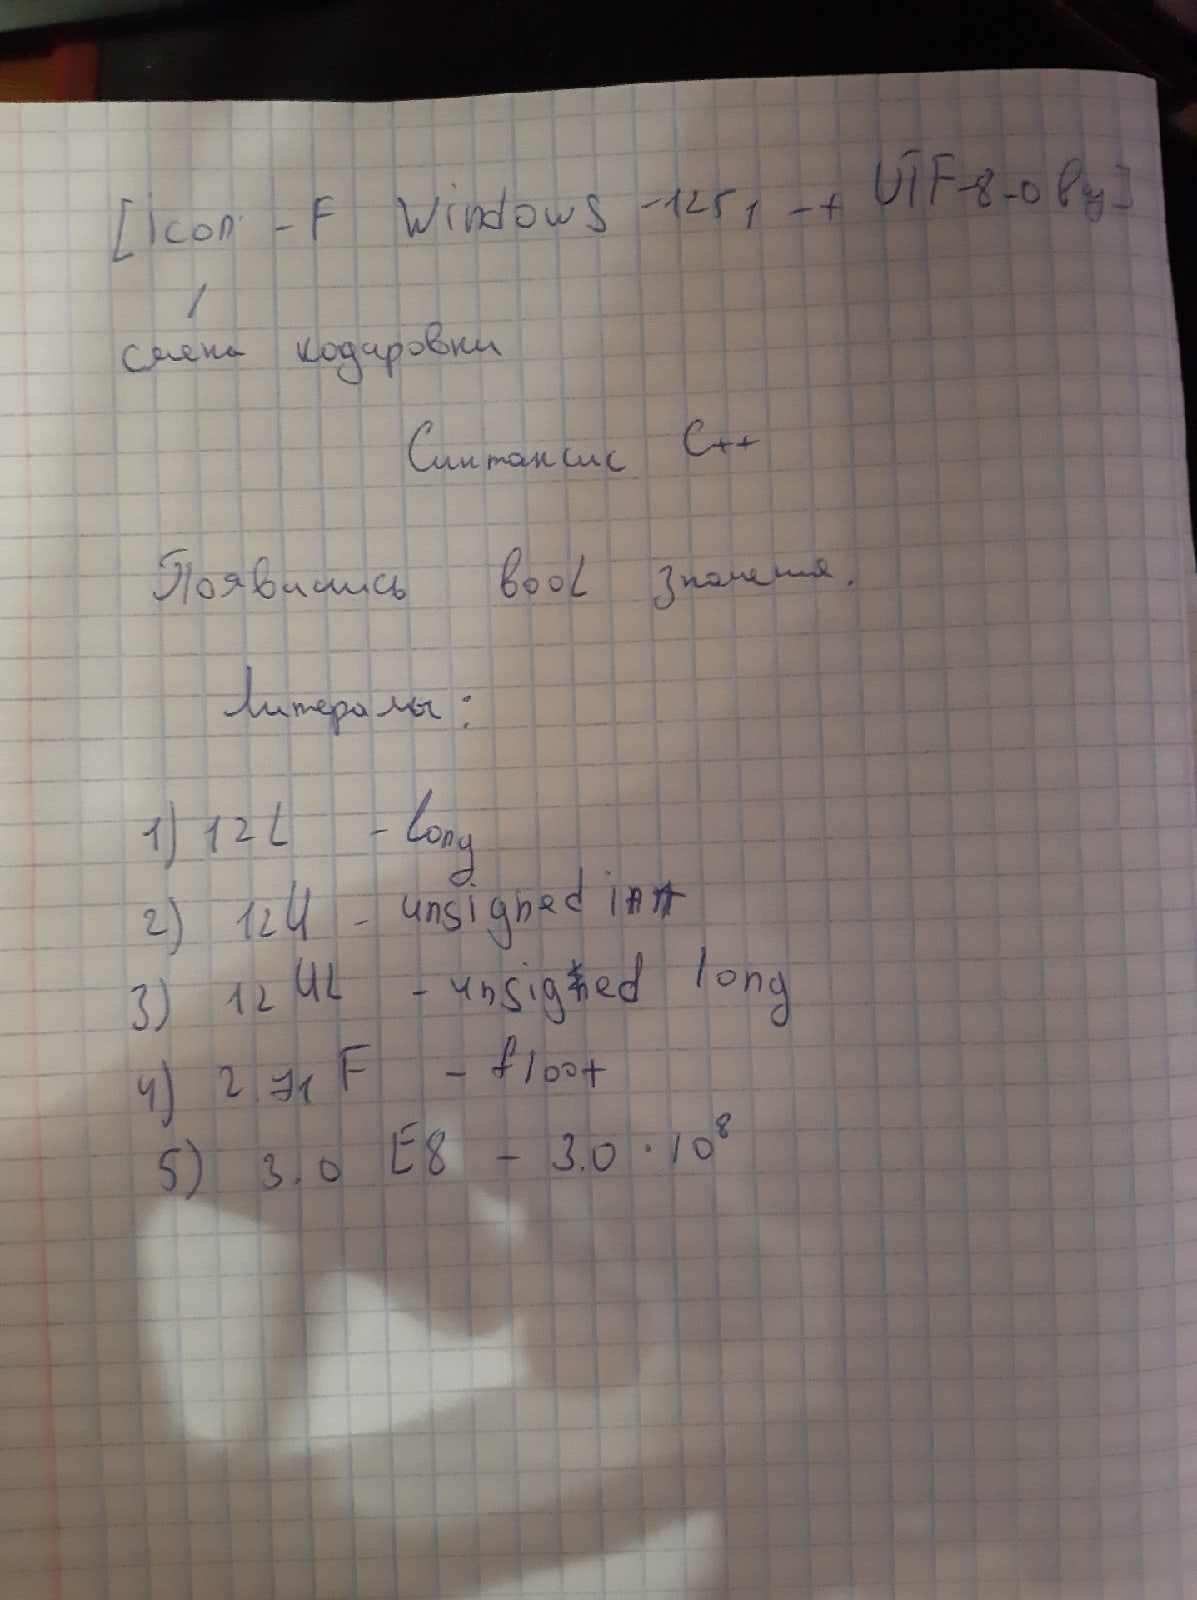 [icon -F Windows -1251 -t UTF-8 -o
смена кодировки
Синтаксис C++
Появились bool значения.
Литералы:
1) 12L - long
2) 12U - unsigned int
3) 12UL - unsigned long
4) 2.71F - float
5) 3.0 E8 - 3.0 · 10⁸